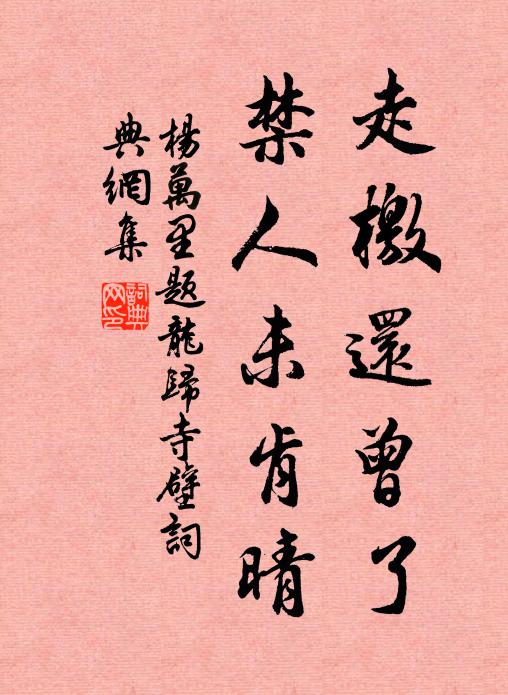 走檄還曾了
禁人未肯晴
楊萬里題龍歸寺壁詞
典網集
詞典网印